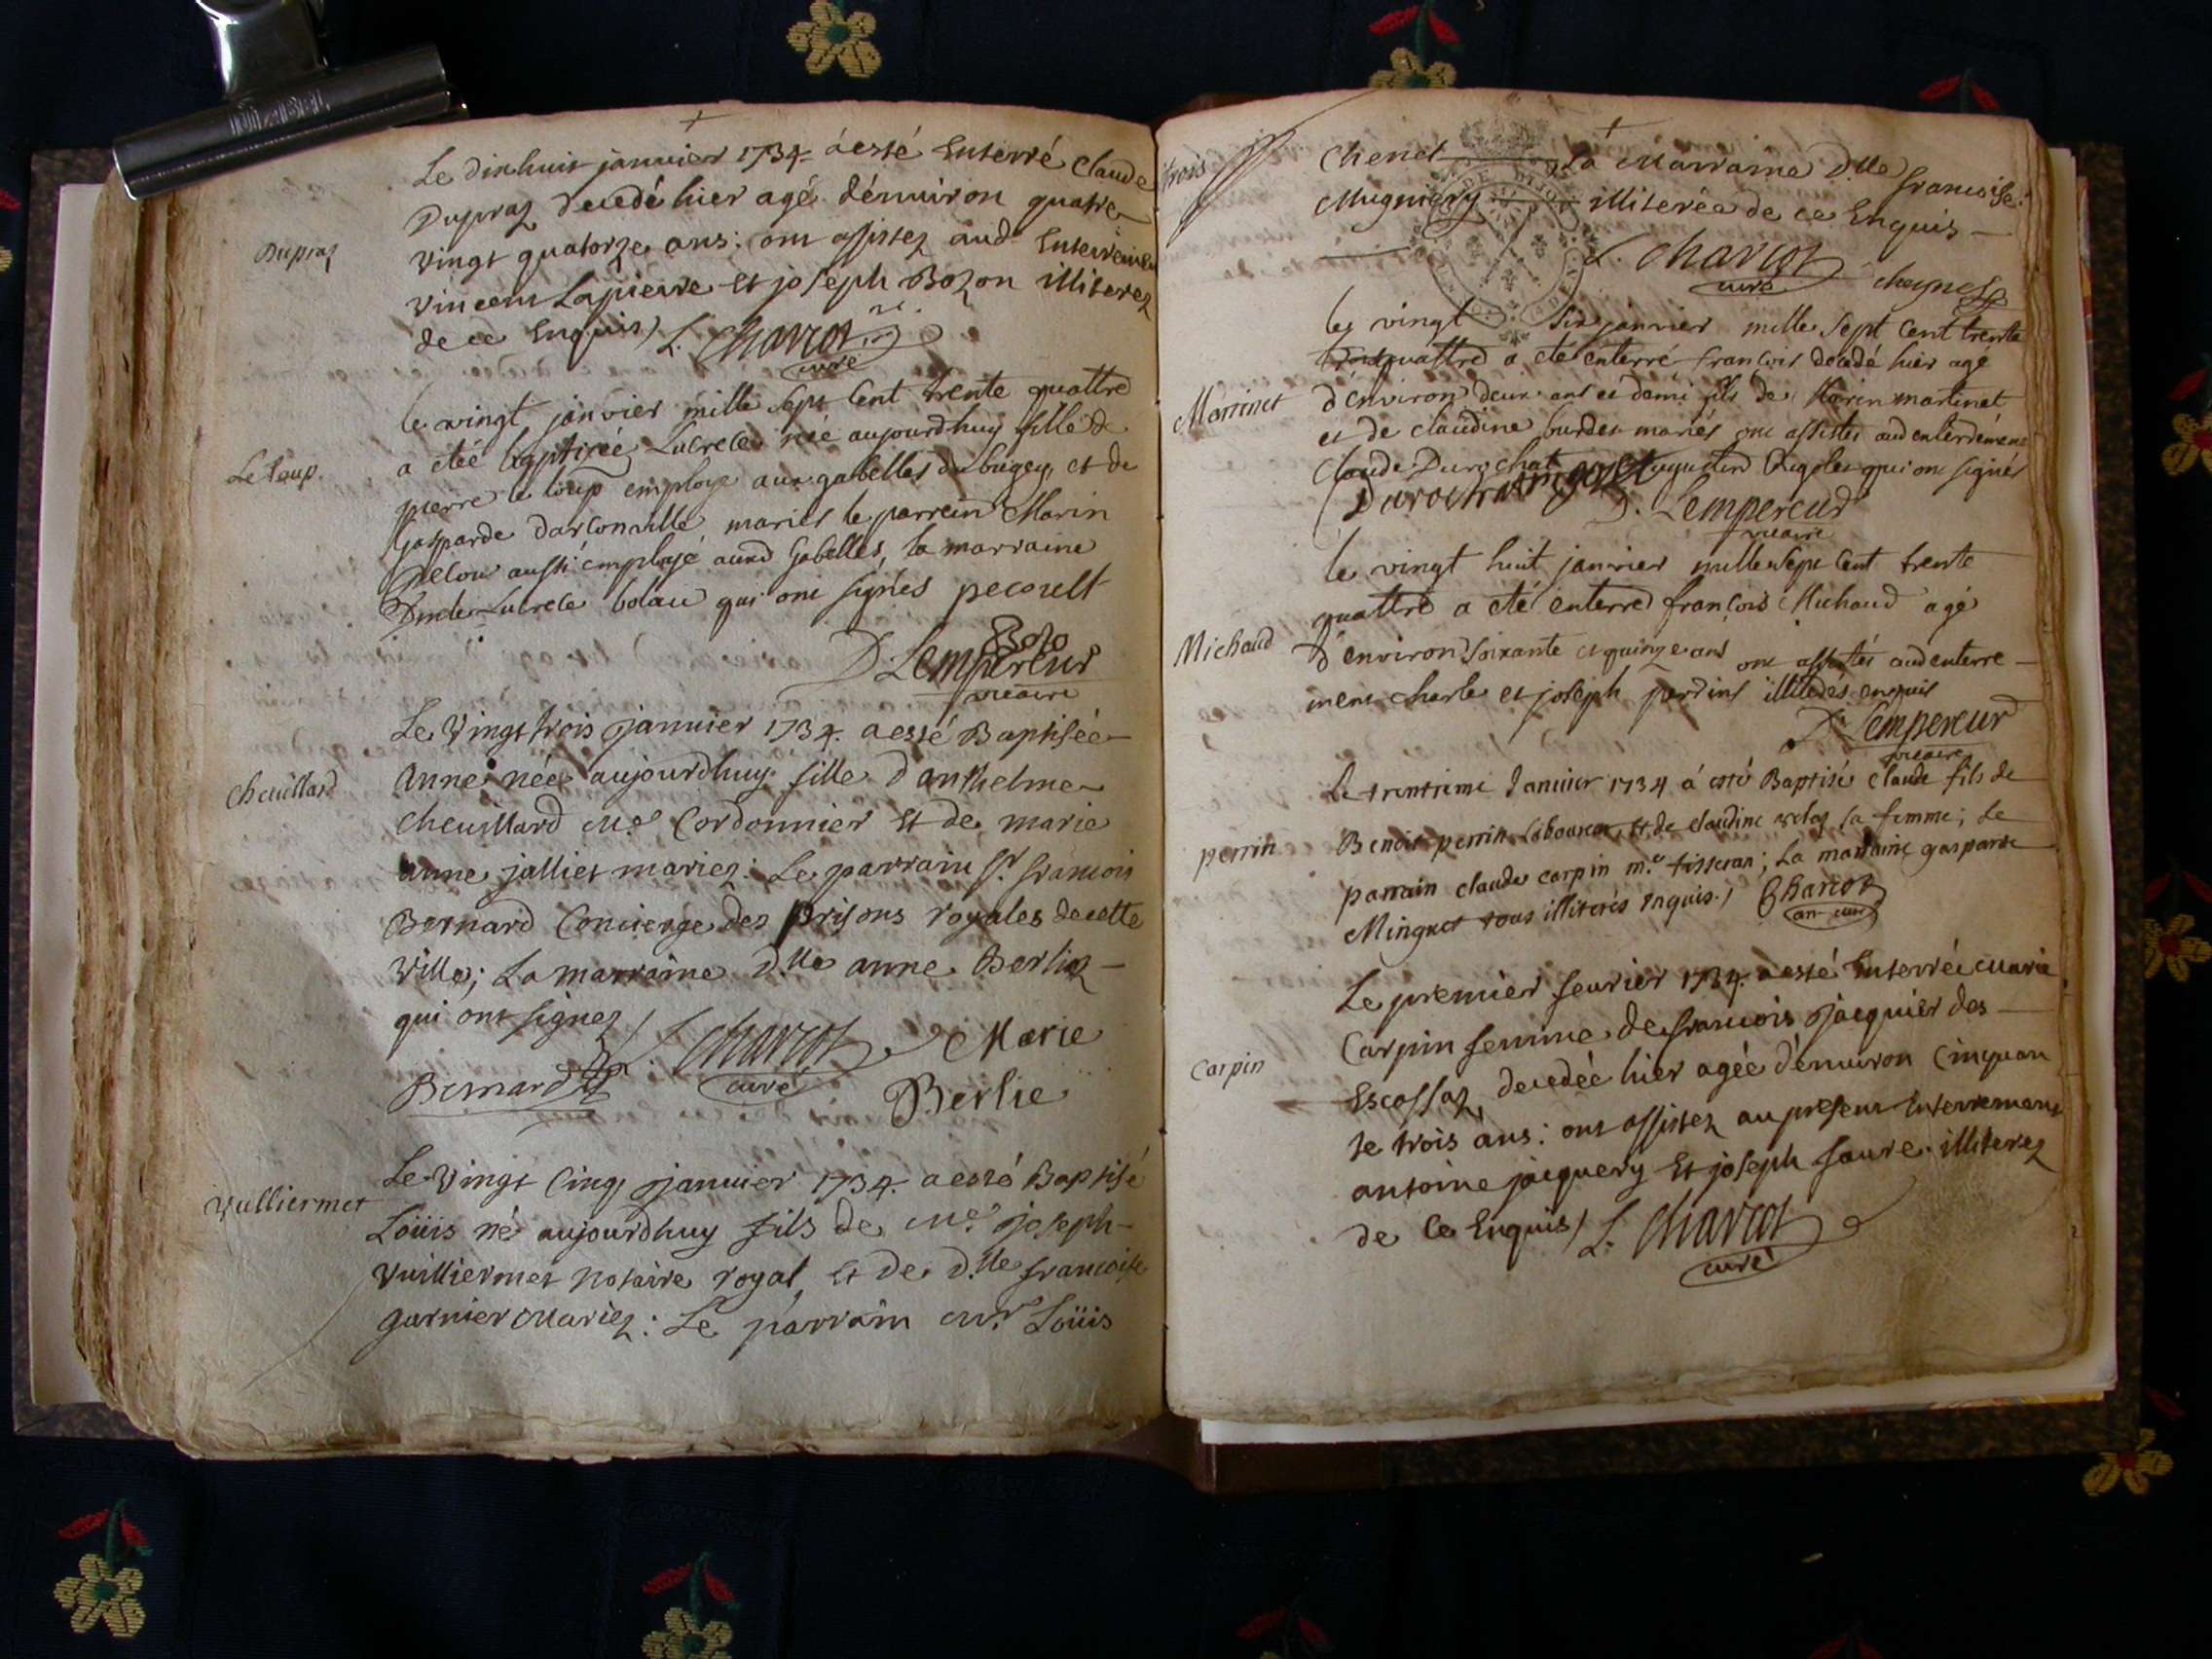 Le dixhuit janvier 1734 á esté Enterré Claude
Dupraz
Dupraz decedé hier agé d'énuiron quatre
vingt quatorze ans: ont assistez aud. Enterrement
vincent Lapierre Et joseph Bozon illiterez
de ce Enquis / L. Charcot
curé
le vingt janvier mille sept Cent trente quattre
Le loup.
a eteé baptizeé Lucrece neé aujourdhuy fille de
pierre le loup employe aux gabelles du bugey, et de
Gasparde mariés le parrein Marin
aussi employé auxd Gabelles, la marraine
Lucrece bolau qui ont signés pecoult
Bolo
D. Lempereur
vicaire
Le Vingt trois janvier 1734. a esté Baptisée
Cheuillard
Anne née aujourdhuy fille d'anthelme
Cheuillard Me. Cordonnier Et de marie
anne jalliet mariez: Le parrain Sr. francois
Bernard Concierge des Prisons royales de cette
Ville; La marraine D.lle anne Berliez
qui ont signez / L. Charcot Marie
Bernard curé Berlie
Le Vingt Cinq janvier 1734. a esté Baptisé
Vulliermet
Loüis né aujourdhuy fils de Me. joseph
Vuilliermet notaire royal, Et de D.lle francoise
garnier Mariez: Le parrain Mr. Loüis
trois
Chenet La Marraine D.lle francoise
Mugniery illiterée de ce Enquis
L. Charcot
curé
DIJON
le vingt six janvier mille sept Cent trente
quattre a eté enterré françois decedé hier age
Martinet
d'environ deux ans et demi fils de Marin martinet
et de claudine burdet mariés ont assistés aud enterrement
Claude Durochat Augustin Rigolet qui ont signés
Durochat rigolet D. Lempereur
vicaire
le vingt huit janvier mille sept Cent trente
quattre a eté enterré françois Michaud agé
Michaud
d'environ soixante et quinze ans ont assistés aud enterre
ment charle et joseph perdins enquis
D. Lempereur
vicaire
Le trentieme Janvier 1734 á esté Baptisé Claude fils de
perrin
Benoit perrin laboureur, Et de claudine velaz sa femme; Le
parrain claude carpin m.e tisseran; La marraine gasparde
Minguet tous illiterés Enquis. / Charcot
an. curé
Le premier feurier 1734. a esté Enterrée Marie
Carpin femme de francois jacquier des
Carpin
Escassaz, decedée hier agée d'énuiron Cinquan
te trois ans: ont assistez au present Enterrement
antoine jacquery Et joseph faure illiterez
de Ce Enquis / L. Charcot
curé